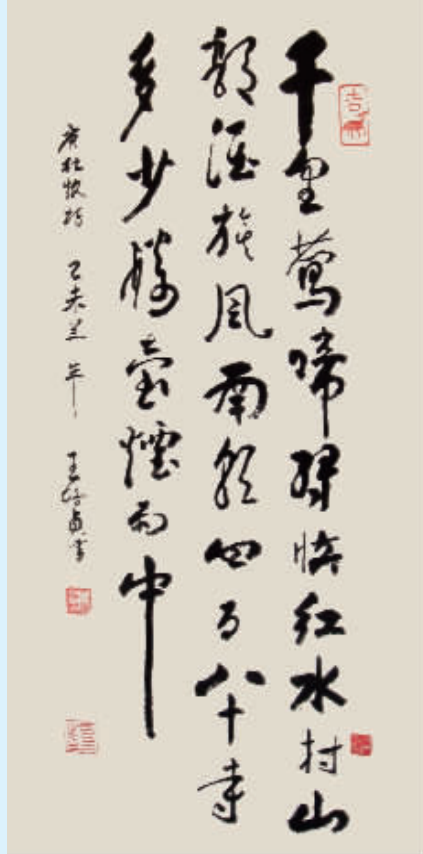 千里鶯啼緑映红水村山
郭酒旗風南朝四百八十寺
多少樓臺煙雨中
唐杜牧詩 乙未羊年 王貞書